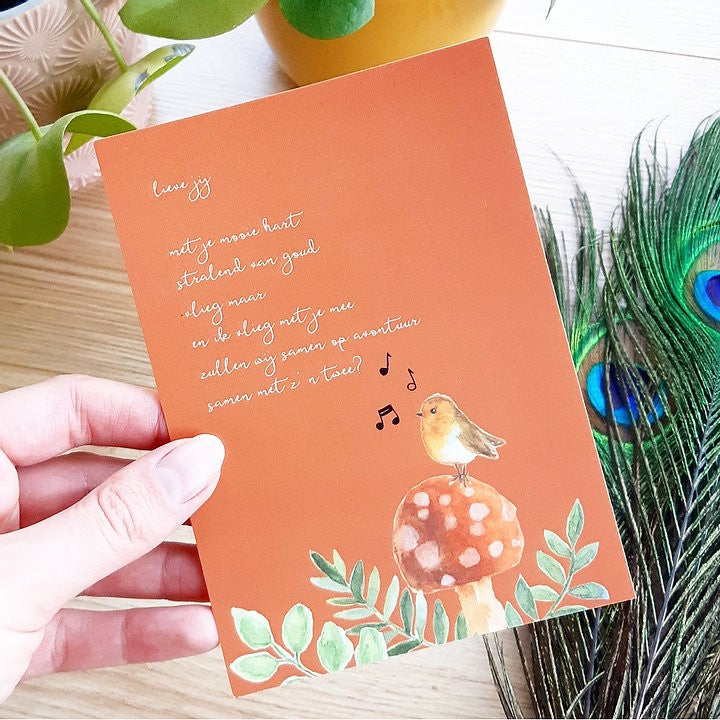 lieve jij
met je mooie hart
stralend van goud
vlieg maar
en ik vlieg met je mee
zullen wij samen op avontuur
samen met z'n twee?